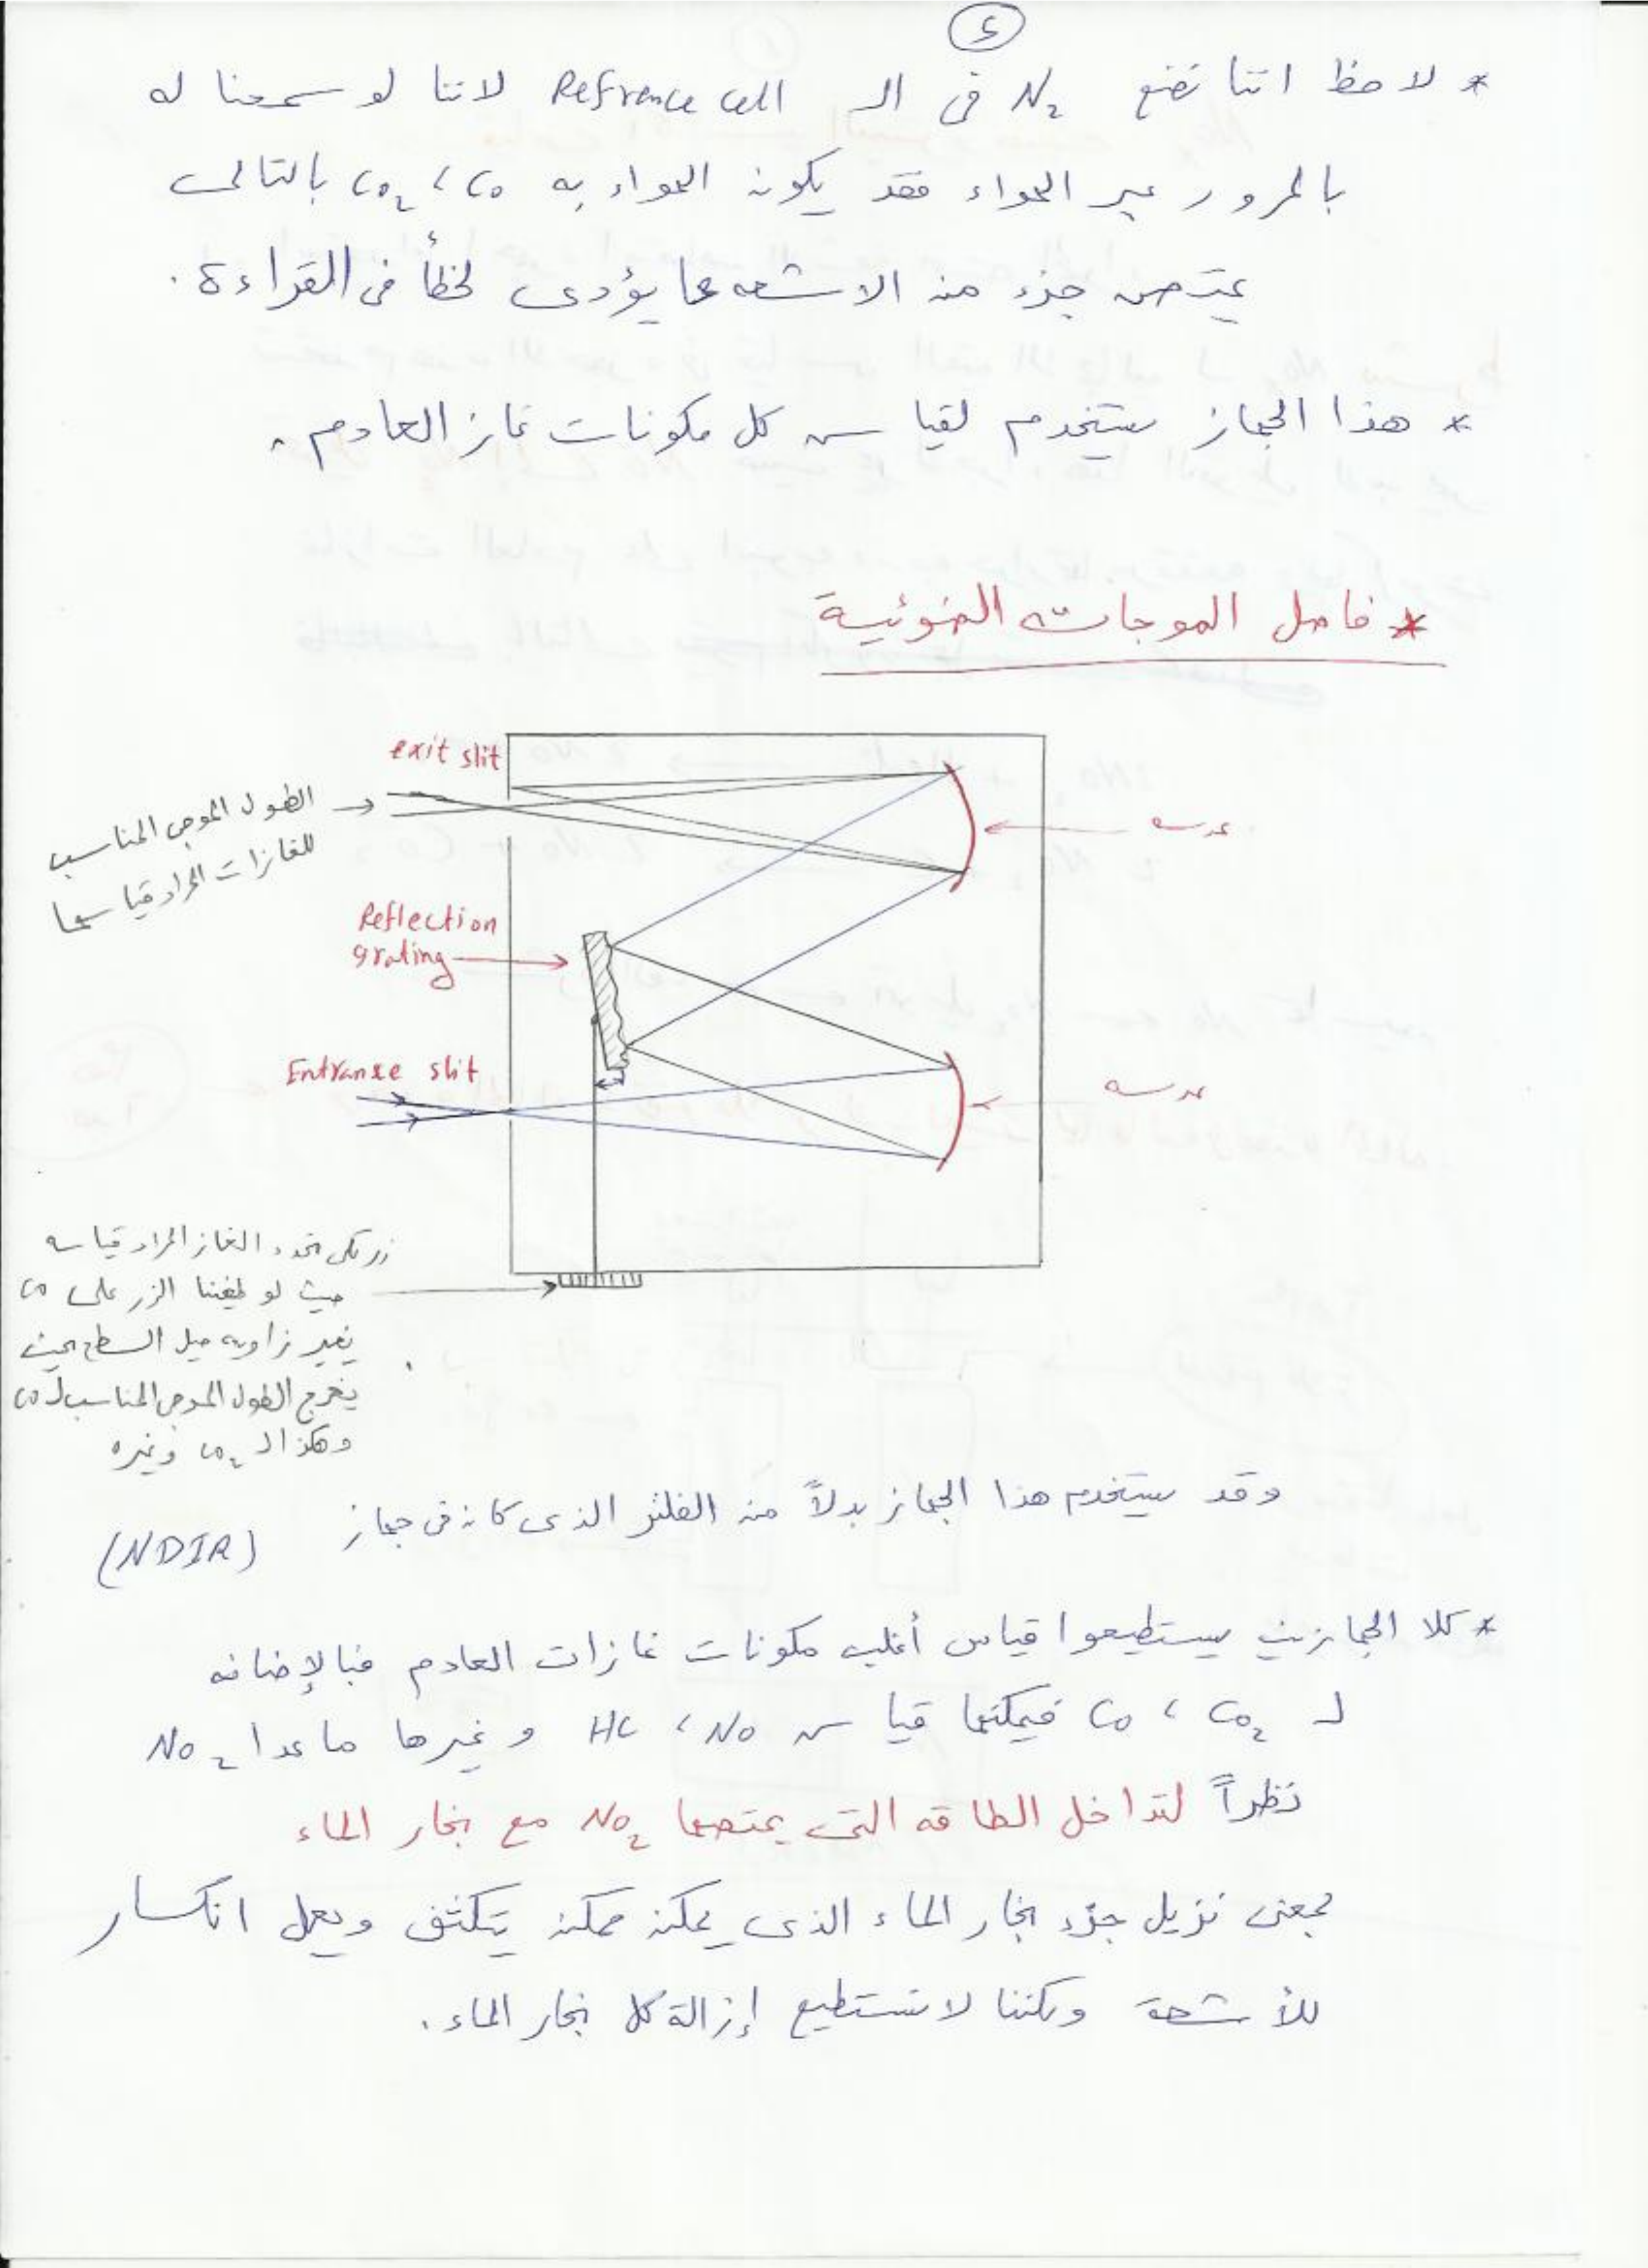 ٤
* لاحظ اننا نضع N₂ فى الـ Refrence cell لاننا لو سمحنا له
بالمرور عبر الهواء فقد يكون الهواء به CO₂ ، CO بالتالى
يمتص جزء من الاشعه مما يؤدى لخطأ فى القراءة .
* هذا الجهاز يستخدم لقياس كل مكونات غاز العادم .
* فاصل الموجات الضوئية
exit slit
الطول الموجى المناسب
للغازات المراد قياسها
عدسه
Reflection
grating
Entranse slit
عدسه
زر لكى نحدد الغاز المراد قياسه
حيث لو لفينا الزر على CO
يغير زاويه ميل السطح بحيث
يخرج الطول الموجى المناسب لـ CO
وهكذا لـ CO₂ وغيره
وقد يستخدم هذا الجهاز بدلاً من الفلتر الذى كان فى جهاز (NDIR)
* كلا الجهازين يستطيعوا قياس أغلب مكونات غازات العادم فبالإضافه
لـ CO₂ ، CO فيمكنها قياس NO ، HC وغيرها ما عدا NO₂
نظراً لتداخل الطاقه التى يمتصها NO₂ مع بخار الماء
بمعنى نزيل جزء بخار الماء الذى يمكن ممكن يتكثف ويعمل انكسار
للأشعة ولكننا لا نستطيع إزالة كل بخار الماء .